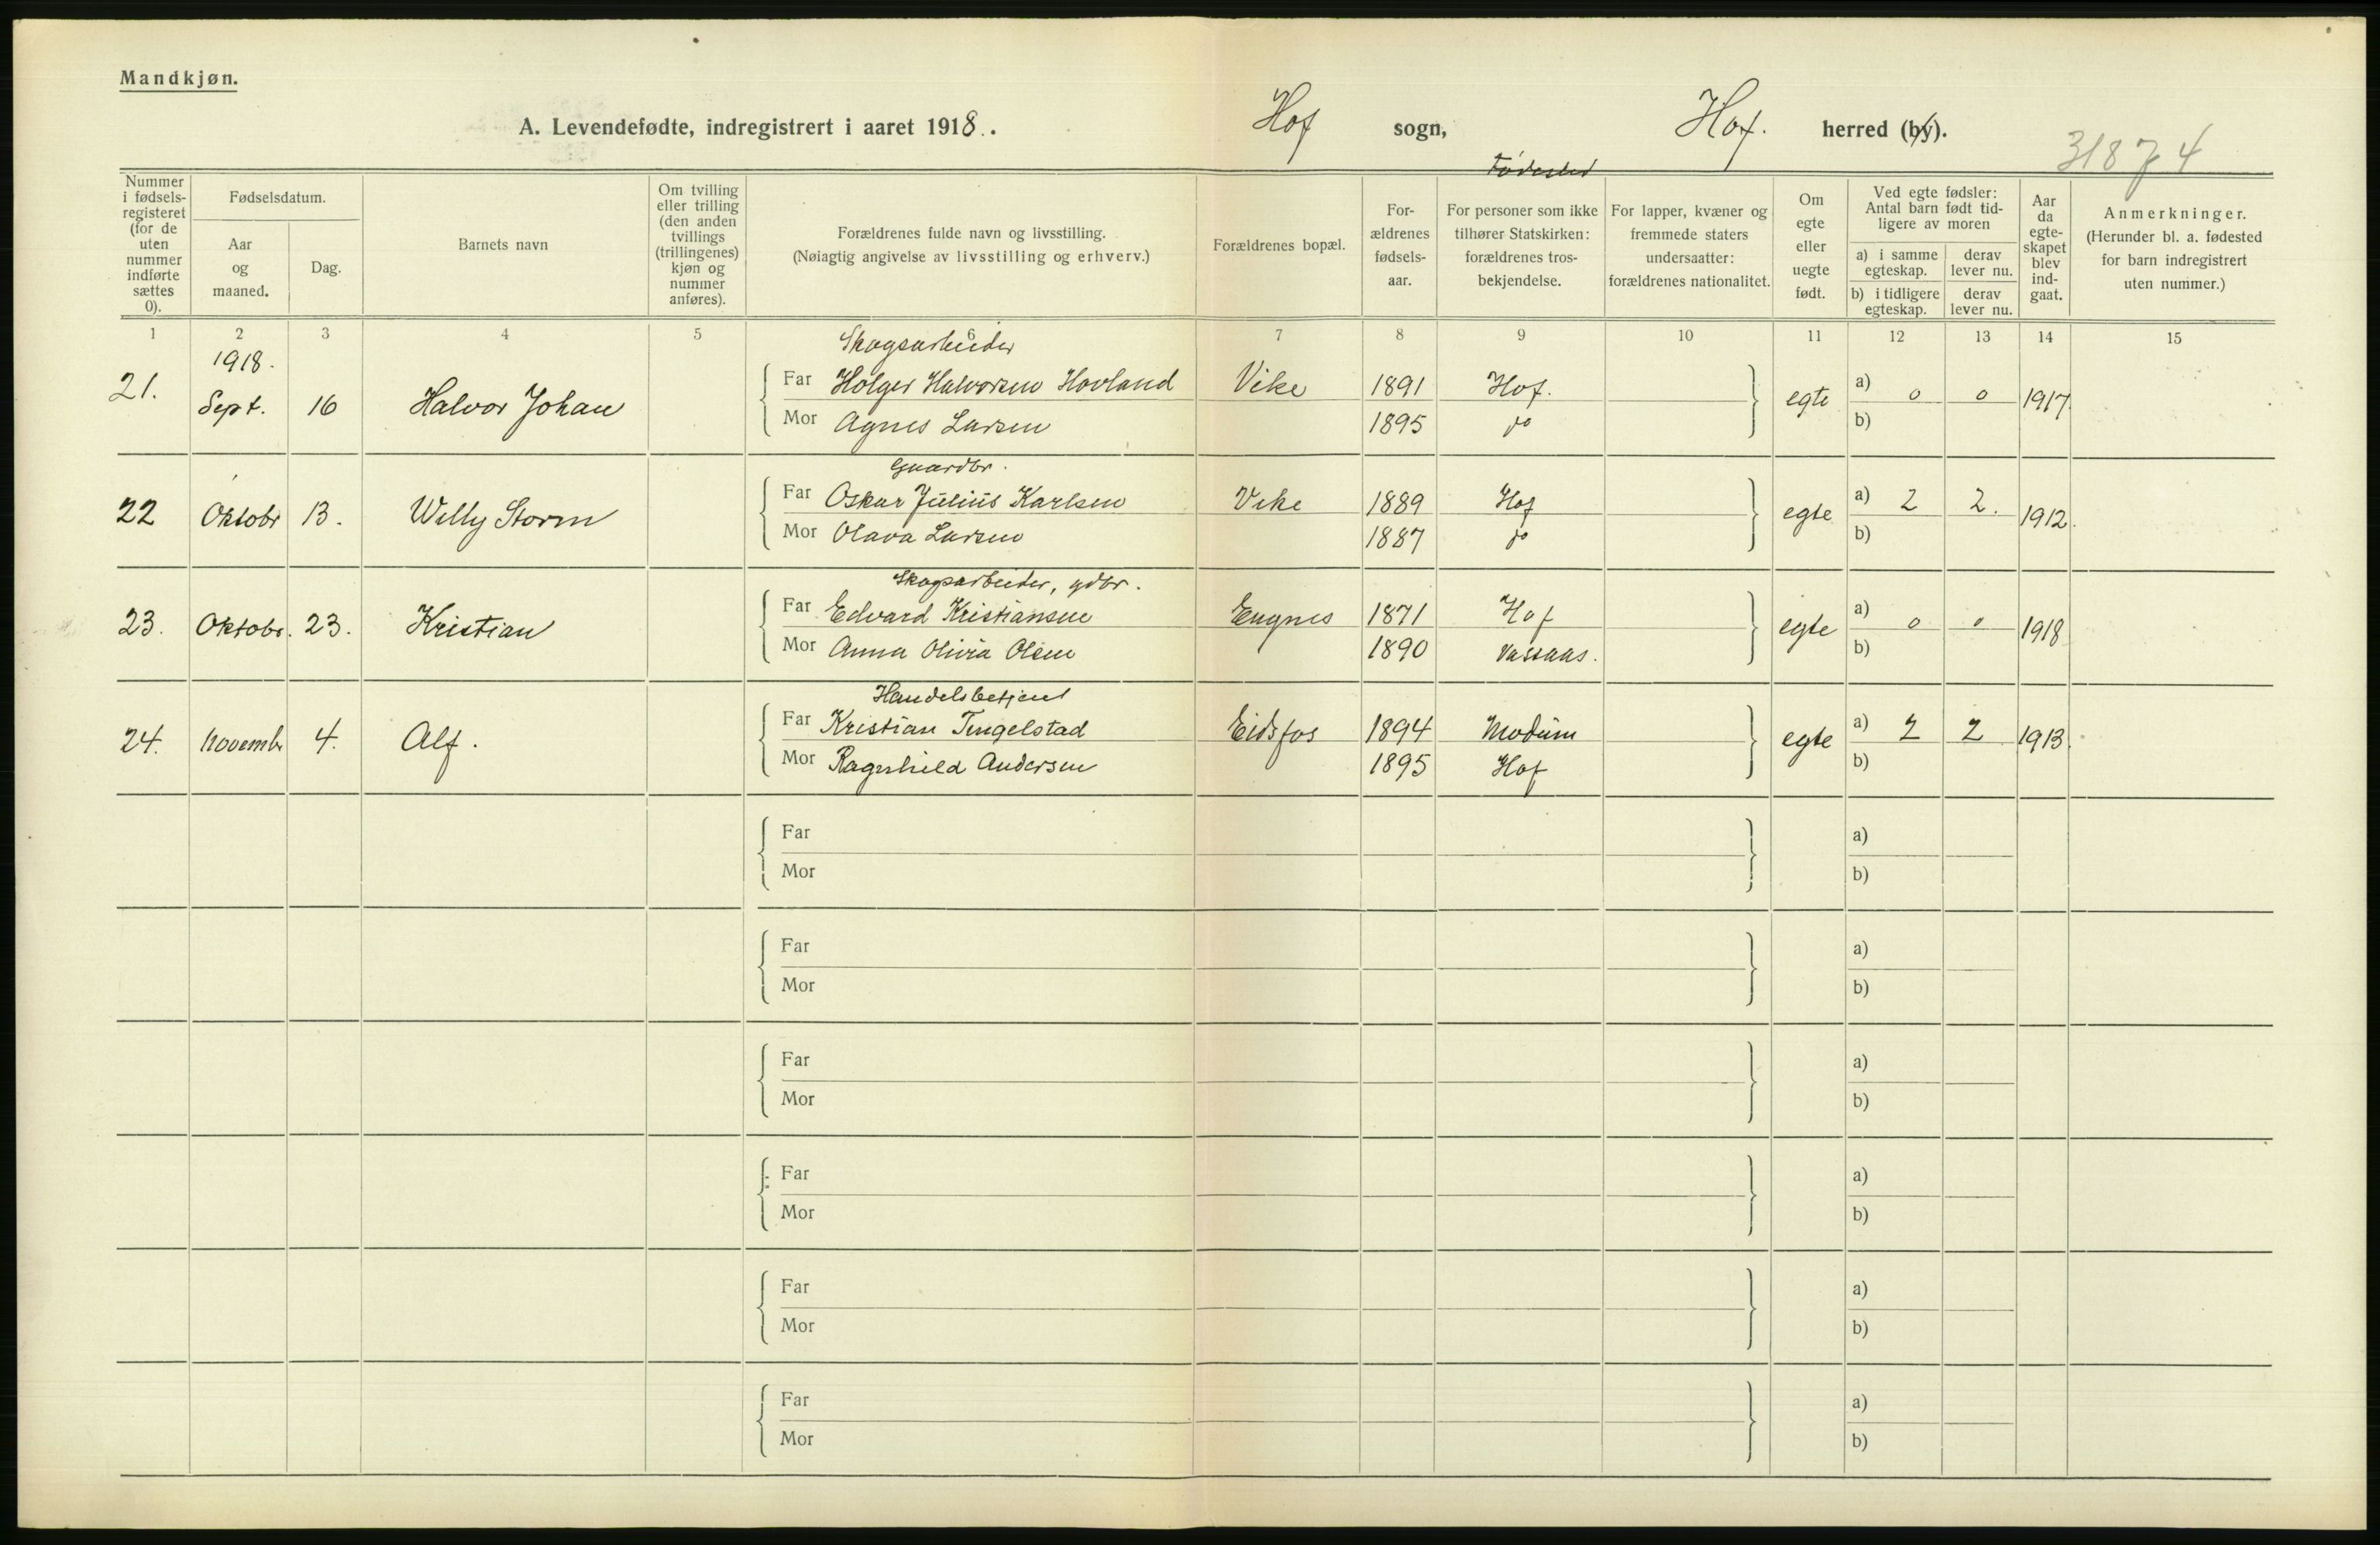 Mandkjøn.
A. Levendefødte, indregistrert i aaret 1918. .
Hof sogn, Hof. herred (by).
31874
Fødested
Nummer i fødsels-registeret (for de uten nummer indførte sættes 0).
Fødselsdatum.
Aar og maaned.
Dag.
Barnets navn
Om tvilling eller trilling (den anden tvillings (trillingenes) kjøn og nummer anføres).
Forældrenes fulde navn og livsstilling.
(Nøiagtig angivelse av livsstilling og erhverv.)
Forældrenes bopæl.
For-ældrenes fødsels-aar.
For personer som ikke tilhører Statskirken: forældrenes tros-bekjendelse.
For lapper, kvæner og fremmede staters undersaatter: forældrenes nationalitet.
Om egte eller uegte født.
Ved egte fødsler: Antal barn født tid-ligere av moren
a) i samme egteskap. derav lever nu.
b) i tidligere egteskap. derav lever nu.
Aar da egte-skapet blev ind-gaat.
Anmerkninger.
(Herunder bl. a. fødested for barn indregistrert uten nummer.)
1 2 3 4 5 6 7 8 9 10 11 12 13 14 15
1918.
Skogsarbeider
21. Sept. 16 Halvor Johan Far Holger Halvorsen Hovland Vike 1891 Hof. egte a) 0 0 1917
Mor Agnes Larsen 1895 do b)
Gaardbr.
22 Oktobr 13. Willy Storm Far Oskar Julius Karlsen Vike 1889 Hof egte a) 2 2. 1912.
Mor Olava Larsen 1887 do b)
Skogsarbeider, gdbr.
23. Oktobr. 23. Kristian Far Edvard Kristiansen Engnes 1871 Hof egte a) 0 0 1918
Mor Anna Olivia Olsen 1890 Vassaas. b)
Handelsbetjent
24. Novembr 4. Alf. Far Kristian Tingelstad Eidsfos 1894 Modum egte a) 2 2 1913.
Mor Ragnhild Andersen 1895 Hof b)
Far a)
Mor b)
Far a)
Mor b)
Far a)
Mor b)
Far a)
Mor b)
Far a)
Mor b)
Far a)
Mor b)